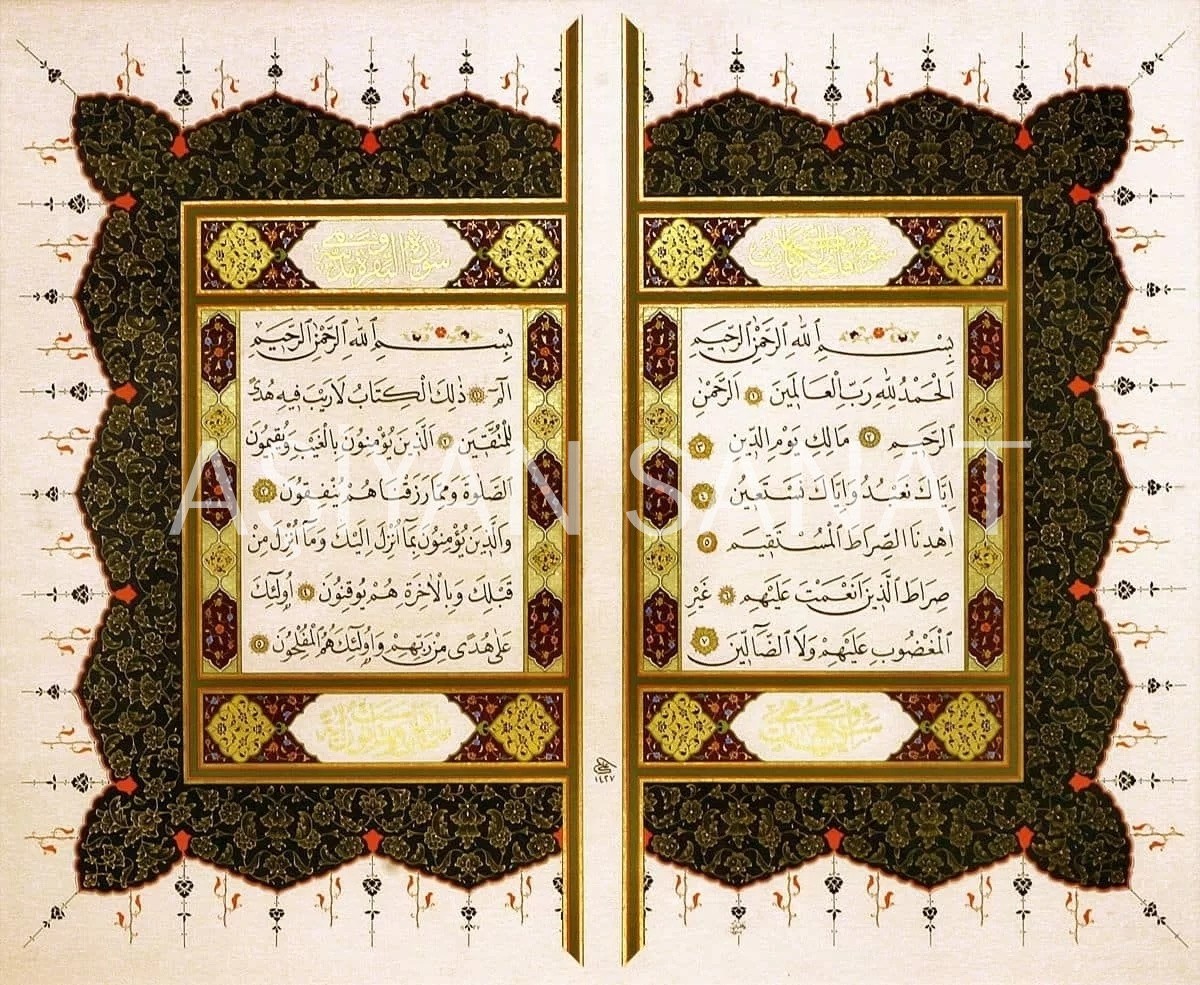 بِسْمِ اللهِ الرَّحْمٰنِ الرَّحِيمِ
اَلْحَمْدُ لِلّٰهِ رَبِّ الْعَالَمِينَ ١ اَلرَّحْمٰنِ
الرَّحِيمِ ٢ مَالِكِ يَوْمِ الدِّينِ ٣
اِيَّاكَ نَعْبُدُ وَاِيَّاكَ نَسْتَعِينُ ٤
اِهْدِنَا الصِّرَاطَ الْمُسْتَقِيمَ ٥
صِرَاطَ الَّذِينَ اَنْعَمْتَ عَلَيْهِمْ ٦ غَيْرِ
الْمَغْضُوبِ عَلَيْهِمْ وَلَا الضَّالِّينَ ٧
سورة البقرة مدنية وهي
بِسْمِ اللهِ الرَّحْمٰنِ الرَّحِيمِ
الٓمٓ ١ ذٰلِكَ الْكِتَابُ لَا رَيْبَ فِيهِ هُدًى
لِلْمُتَّقِينَ ٢ اَلَّذِينَ يُؤْمِنُونَ بِالْغَيْبِ وَيُقِيمُونَ
الصَّلٰوةَ وَمِمَّا رَزَقْنَاهُمْ يُنْفِقُونَ ٣
وَالَّذِينَ يُؤْمِنُونَ بِمَٓا اُنْزِلَ اِلَيْكَ وَمَٓا اُنْزِلَ مِنْ
قَبْلِكَ وَبِالْاٰخِرَةِ هُمْ يُوقِنُونَ ٤ اُولٰٓئِكَ
عَلٰى هُدًى مِنْ رَبِّهِمْ وَاُولٰٓئِكَ هُمُ الْمُفْلِحُونَ ٥
١٤٢٧
AŞİYAN SANAT